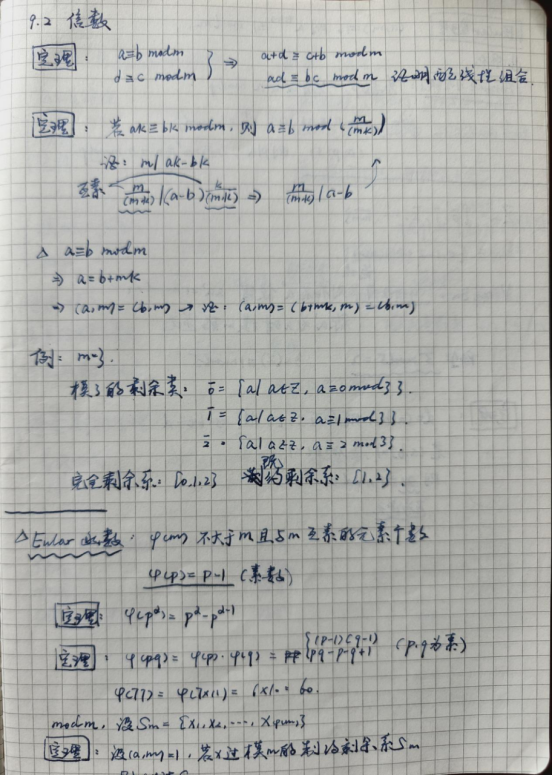 9.2 信数
定理: a≡b mod m } ⇒ a+d ≡ c+b mod m
d≡c mod m ad ≡ bc mod m 证明配线性组合.
定理: 若 ak≡bk mod m, 则 a≡b mod (m/(m,k))
证: m | ak-bk
互素 m/(m,k) | (a-b) k/(m,k) ⇒ m/(m,k) | a-b
△ a≡b mod m
⇒ a=b+mk
⇒ (a,m)=(b,m) → 证: (a,m)=(b+mk,m)=(b,m)
例: m=3.
模3的剩余类: 0̄={a|a∈Z, a≡0 mod 3}.
1̄={a|a∈Z, a≡1 mod 3}.
2̄={a|a∈Z, a≡2 mod 3}.
完全剩余系: {0,1,2} 既约剩余系: {1,2}.
△ Eular函数: φ(m) 不大于m且与m互素的元素个数
φ(p)=p-1 (素数)
定理: φ(p^α)=p^α-p^α-1
定理: φ(pq)=φ(p)·φ(q)= {(p-1)(q-1) (p,q为素)
pq-p-q+1
φ(77)=φ(7×11)=6×10=60.
mod m, 设Sm={x₁,x₂,…,xφ(m)}
定理: 设(a,m)=1, 若x过模m的制约剩余系Sm